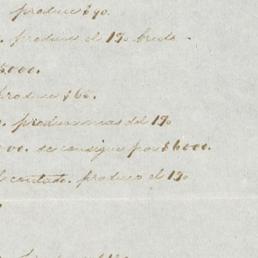 produce $90.
produce el 1% bruto.
5.000.
produce $60.
producen mas del 1%
000. se consigue por $6000.
al contado. produce el 1%